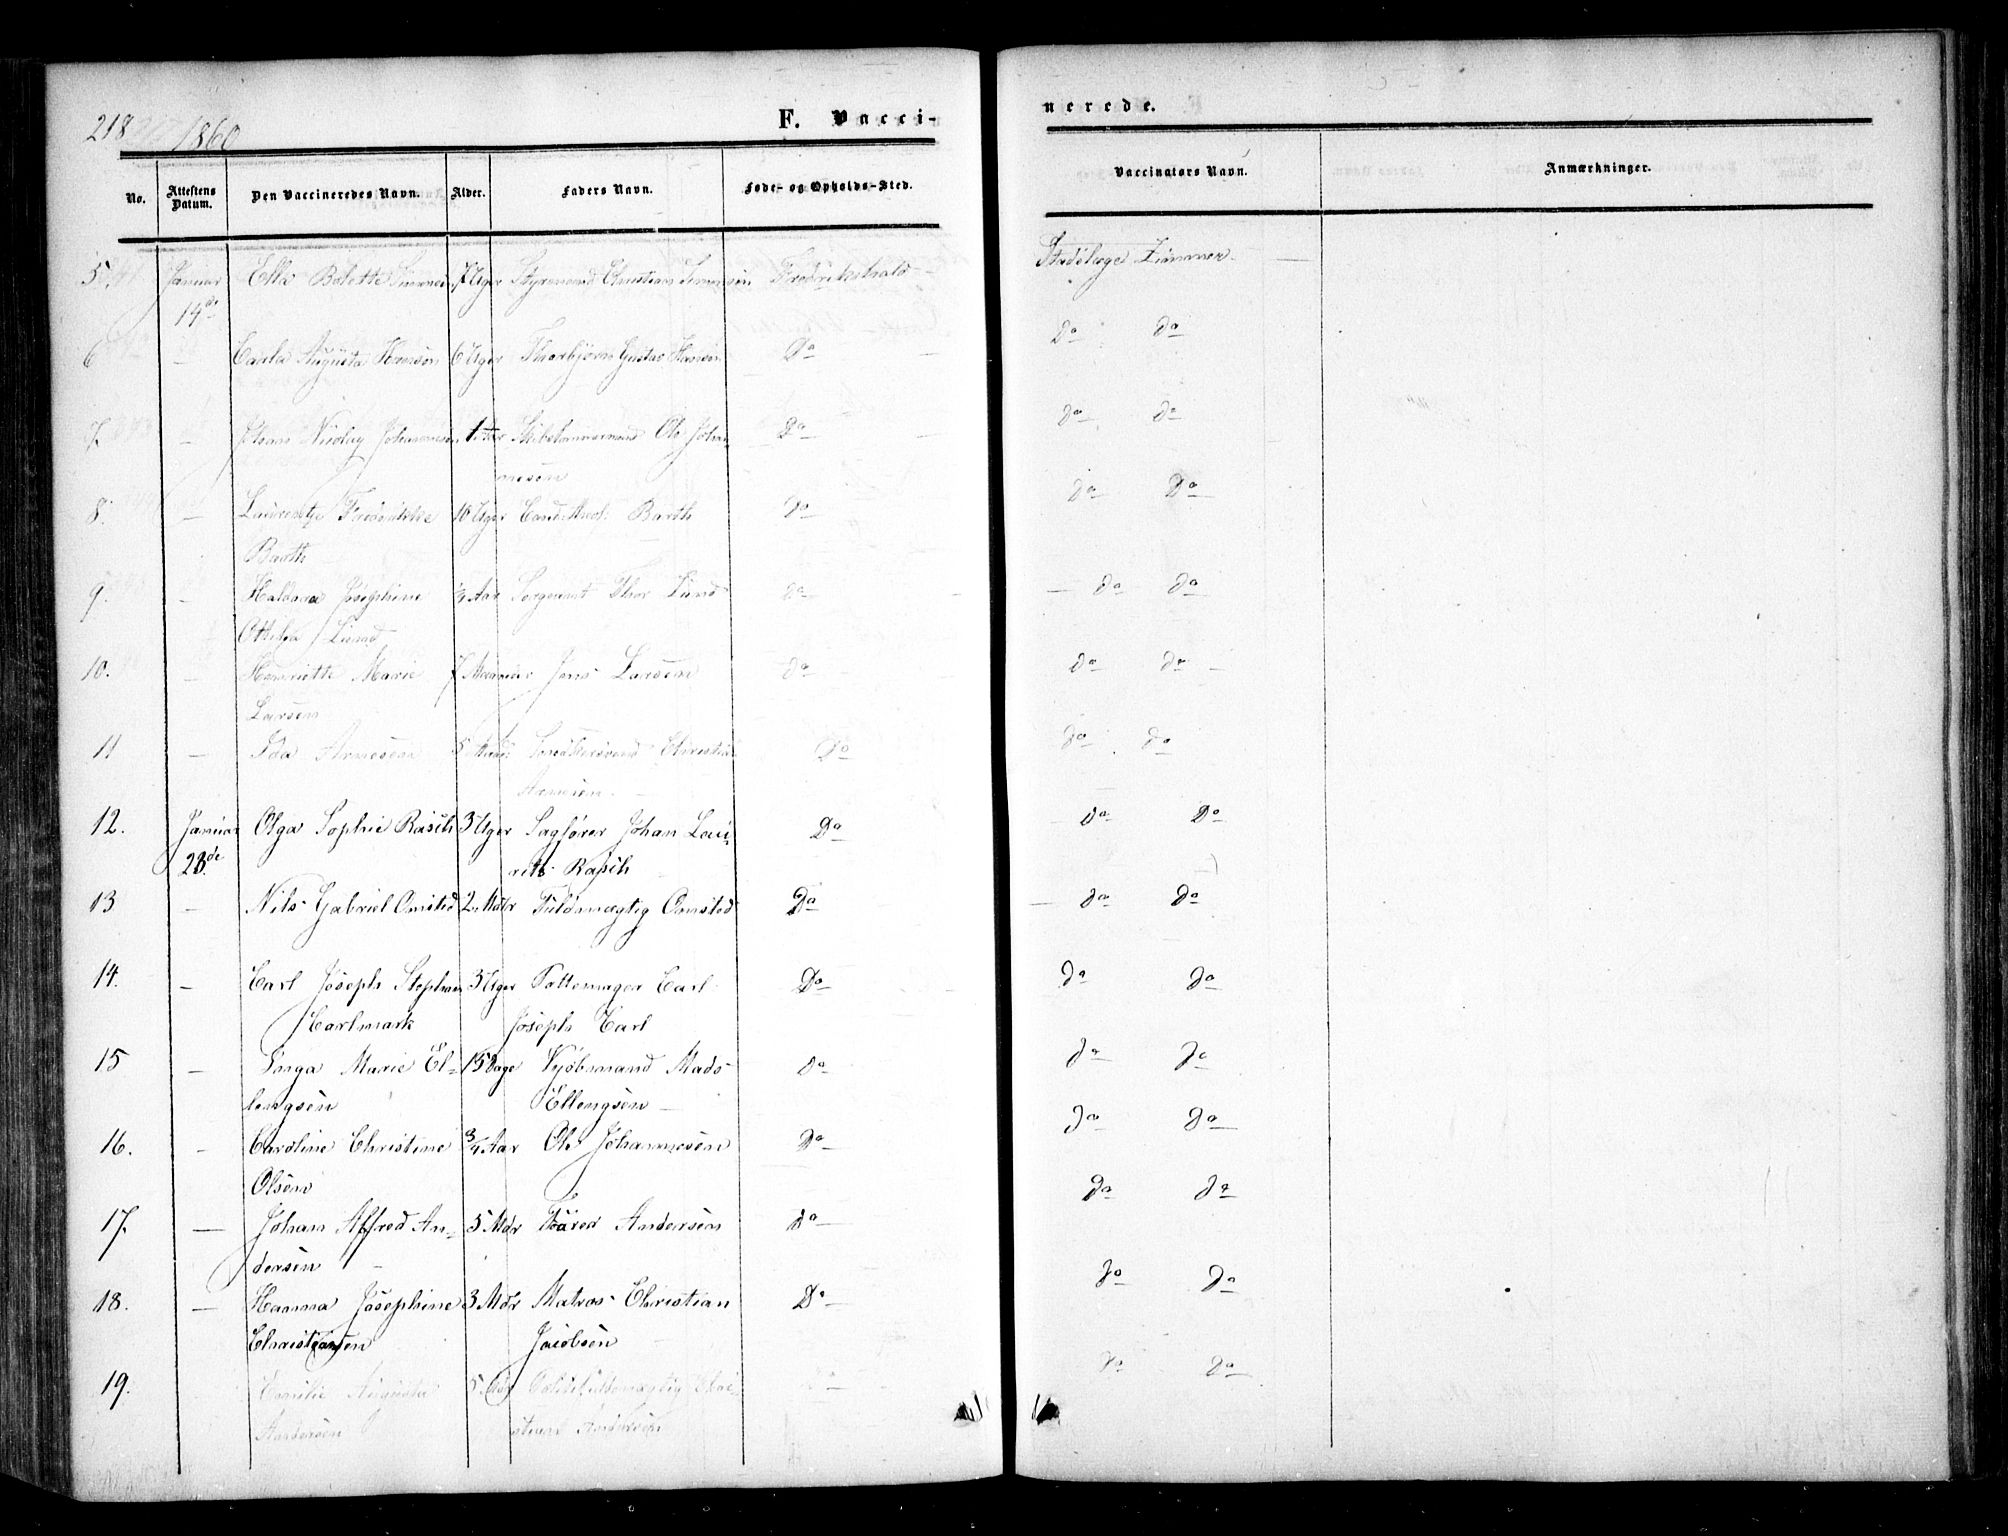 218 1860 F. Vacci-
No. Attestens Datum. Den Vaccineredes Navn. Alder. Faders Navn. Føde- og Opholds-Sted.
5. Januar 14de Ella Bolette Simensen 7 Uger Styrmand Christian Simensen Fredrikshald
6 — Carla Augusta Hansen 6 Uger Thorbjørn Gustav Hansen Do
7. — Johan Nicolay Johannesen 1 Skibstømmermand Ole Johan-
nesen Do
8. — Laurentze Fredrikke 10 Uger Cand. Barth Do
Barth
9. — Josephine ¾ Aar Sergeant Thor Lund do
Lund
10. — Henriette Marie 7 Maaneder Jens Larsen do
Larsen
11 — Ida Arnesen 5 Maad: Christian Do
Arnesen
12. Januar 28de Olga Sophie Rasch 3 Uger Sagfører Johan Lau-
ritz Rasch Do
13 — Nils Gabriel Omsted 2 Mdr Fuldmægtig Omsted Do
14. — Carl Joseph Stephan 3 Uger Pottemager Carl Do
Carlmark Joseph Carl
15 — Inga Marie El- 15 Dage Kjøbmand Mads Do
lengsen Ellengsen
16. — Caroline Christine ¾ Aar Ole Johannesen Do
Olsen
17. — Johan Alfred An- 5 Mdr Andersen Do
dersen
18. — Hanna Josephine 3 Mdr Matros Christian Do
Christiansen Jacobsen
19. Emilie Augusta 5 Mdr Chri- Do
Andersen stian Andersen
nerede.
Vaccinatørs Navn. Anmærkninger.
Stadslæge Zimmer
Do do
do do
do Do
do do
do do
do do
do Do
do do
do do
do do
do do
do do
do do
do do